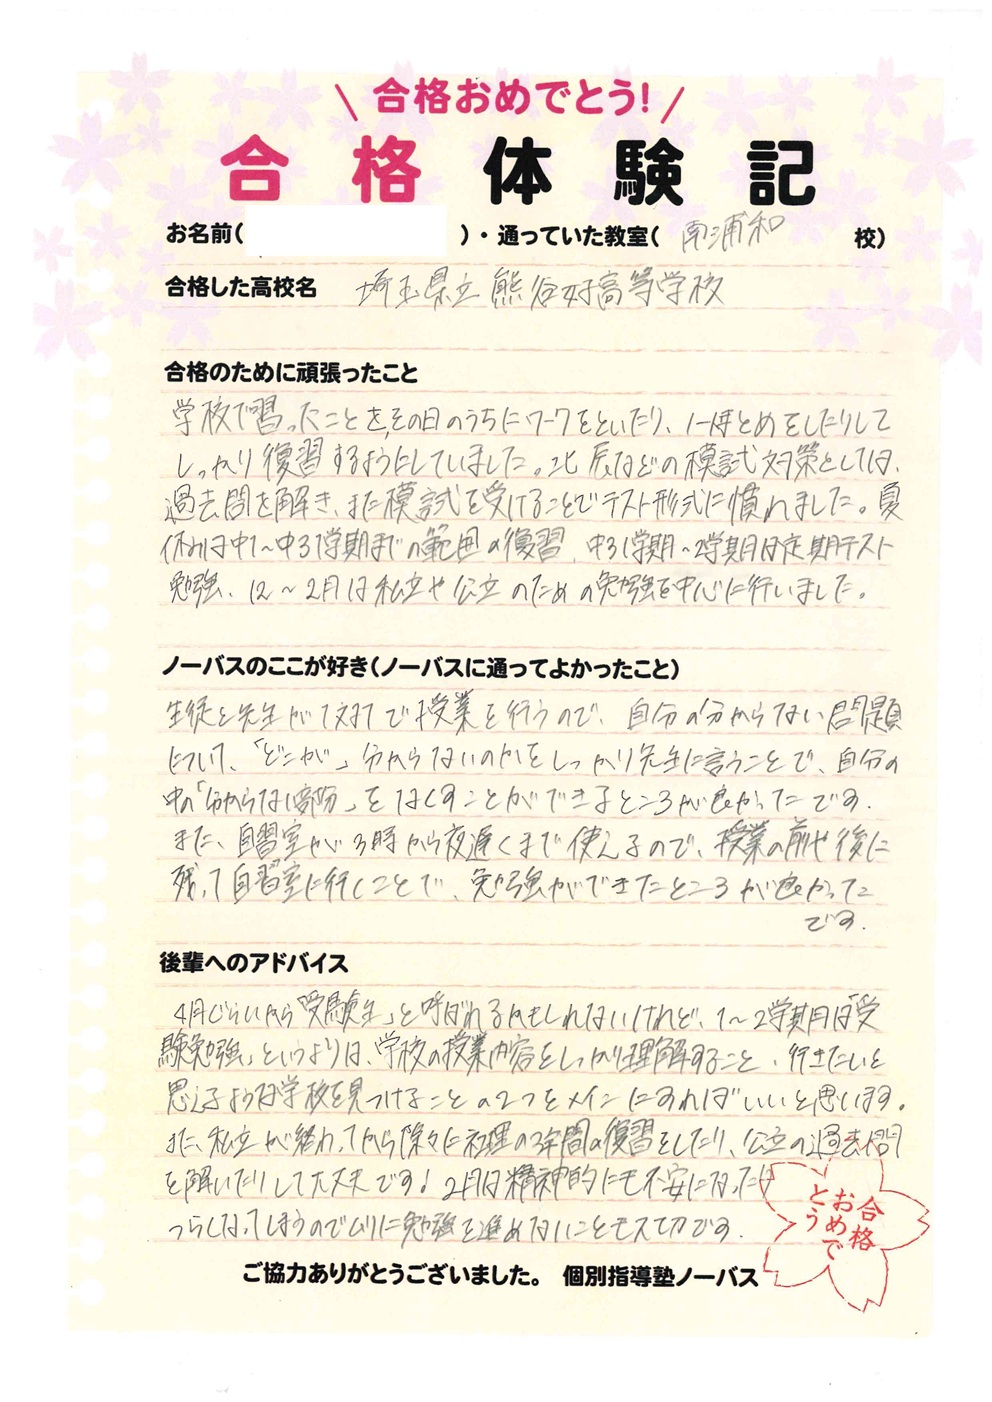 合格おめでとう!
合格体験記
お名前( )・通っていた教室( 南浦和 校)
合格した高校名 埼玉県立熊谷女高等学校
合格のために頑張ったこと
学校で習ったことを、その日のうちにワークをといたり、ノートまとめをしたりして
しっかり復習するようにしていました。北辰などの模試対策としては、
過去問を解き、また模試を受けることでテスト形式に慣れました。夏
休みは中1〜中3 1学期までの範囲の復習、中3 1学期〜2学期は定期テスト
勉強、12〜2月は私立や公立のための勉強を中心に行いました。
ノーバスのここが好き(ノーバスに通ってよかったこと)
生徒と先生が1対1で授業を行うので、自分の分からない問題
について、「どこが」分からないのかをしっかり先生に言うことで、自分の
中の「分からない部分」をなくすことができるところが良かったです。
また、自習室が3時から夜遅くまで使えるので、授業の前や後に
残って自習室に行くことで、勉強ができたところが良かった
です。
後輩へのアドバイス
4月ぐらいから「受験生」と呼ばれるかもしれないけれど、1〜2学期は「受
験勉強」というよりは、学校の授業内容をしっかり理解すること、行きたいと
思えるような学校を見つけることの2つをメインにすればいいと思います。
また、私立が終わってから徐々に社理の3年間の復習をしたり、公立の過去問
を解いたりして大丈夫です！2月は精神的にも不安になったり
つらくなってしまうのでムリに勉強を進めないことも大切です。
合格
おめで
とう
ご協力ありがとうございました。 個別指導塾ノーバス